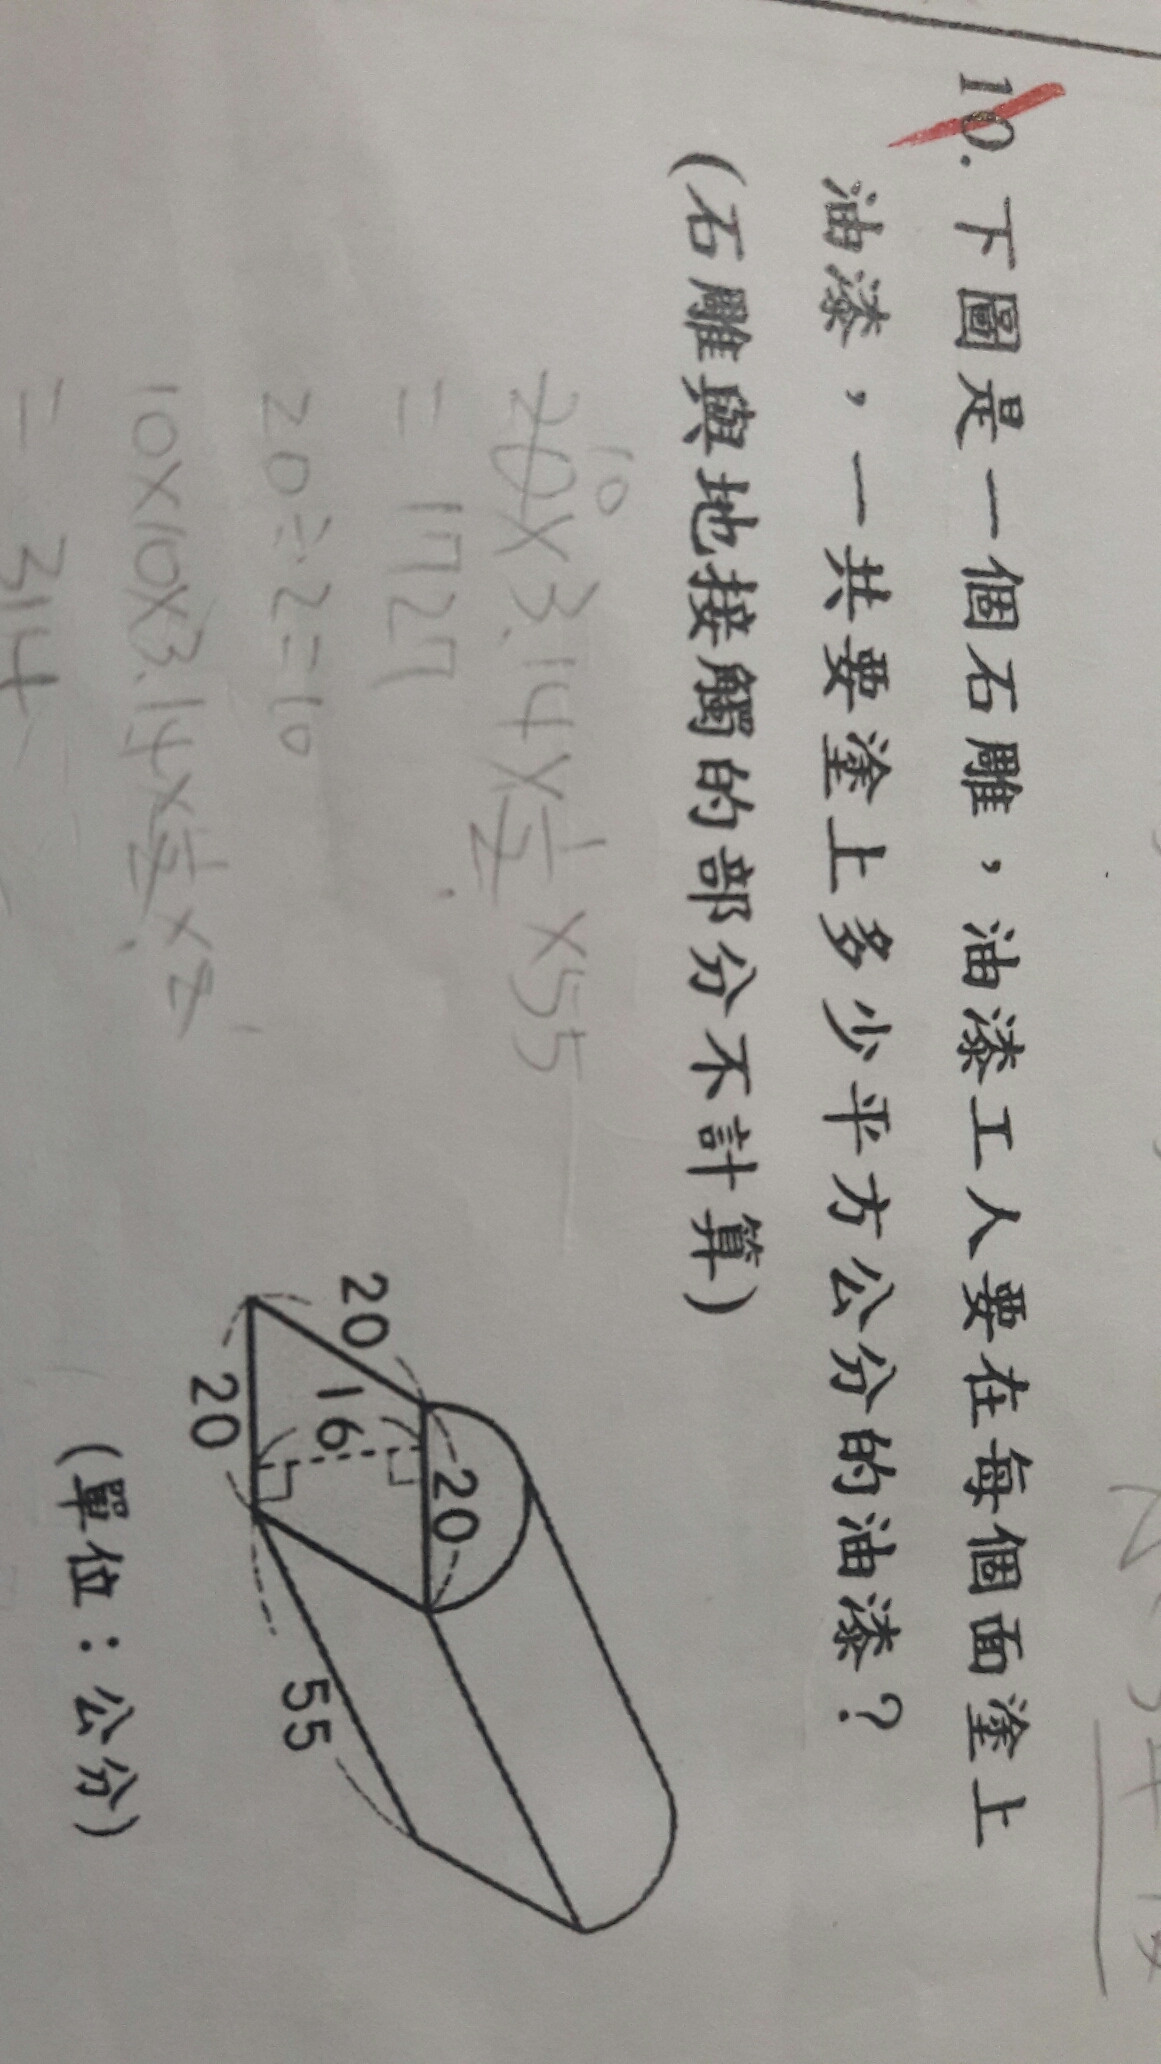 10. 下圖是一個石雕，油漆工人要在每個面塗上
油漆，一共要塗上多少平方公分的油漆？
(石雕與地接觸的部分不計算)
10
20×3.14×1/2×55
=1727
20÷2=10
10×10×3.14×1/2×2
=314
20
20
16
20
55
(單位：公分)